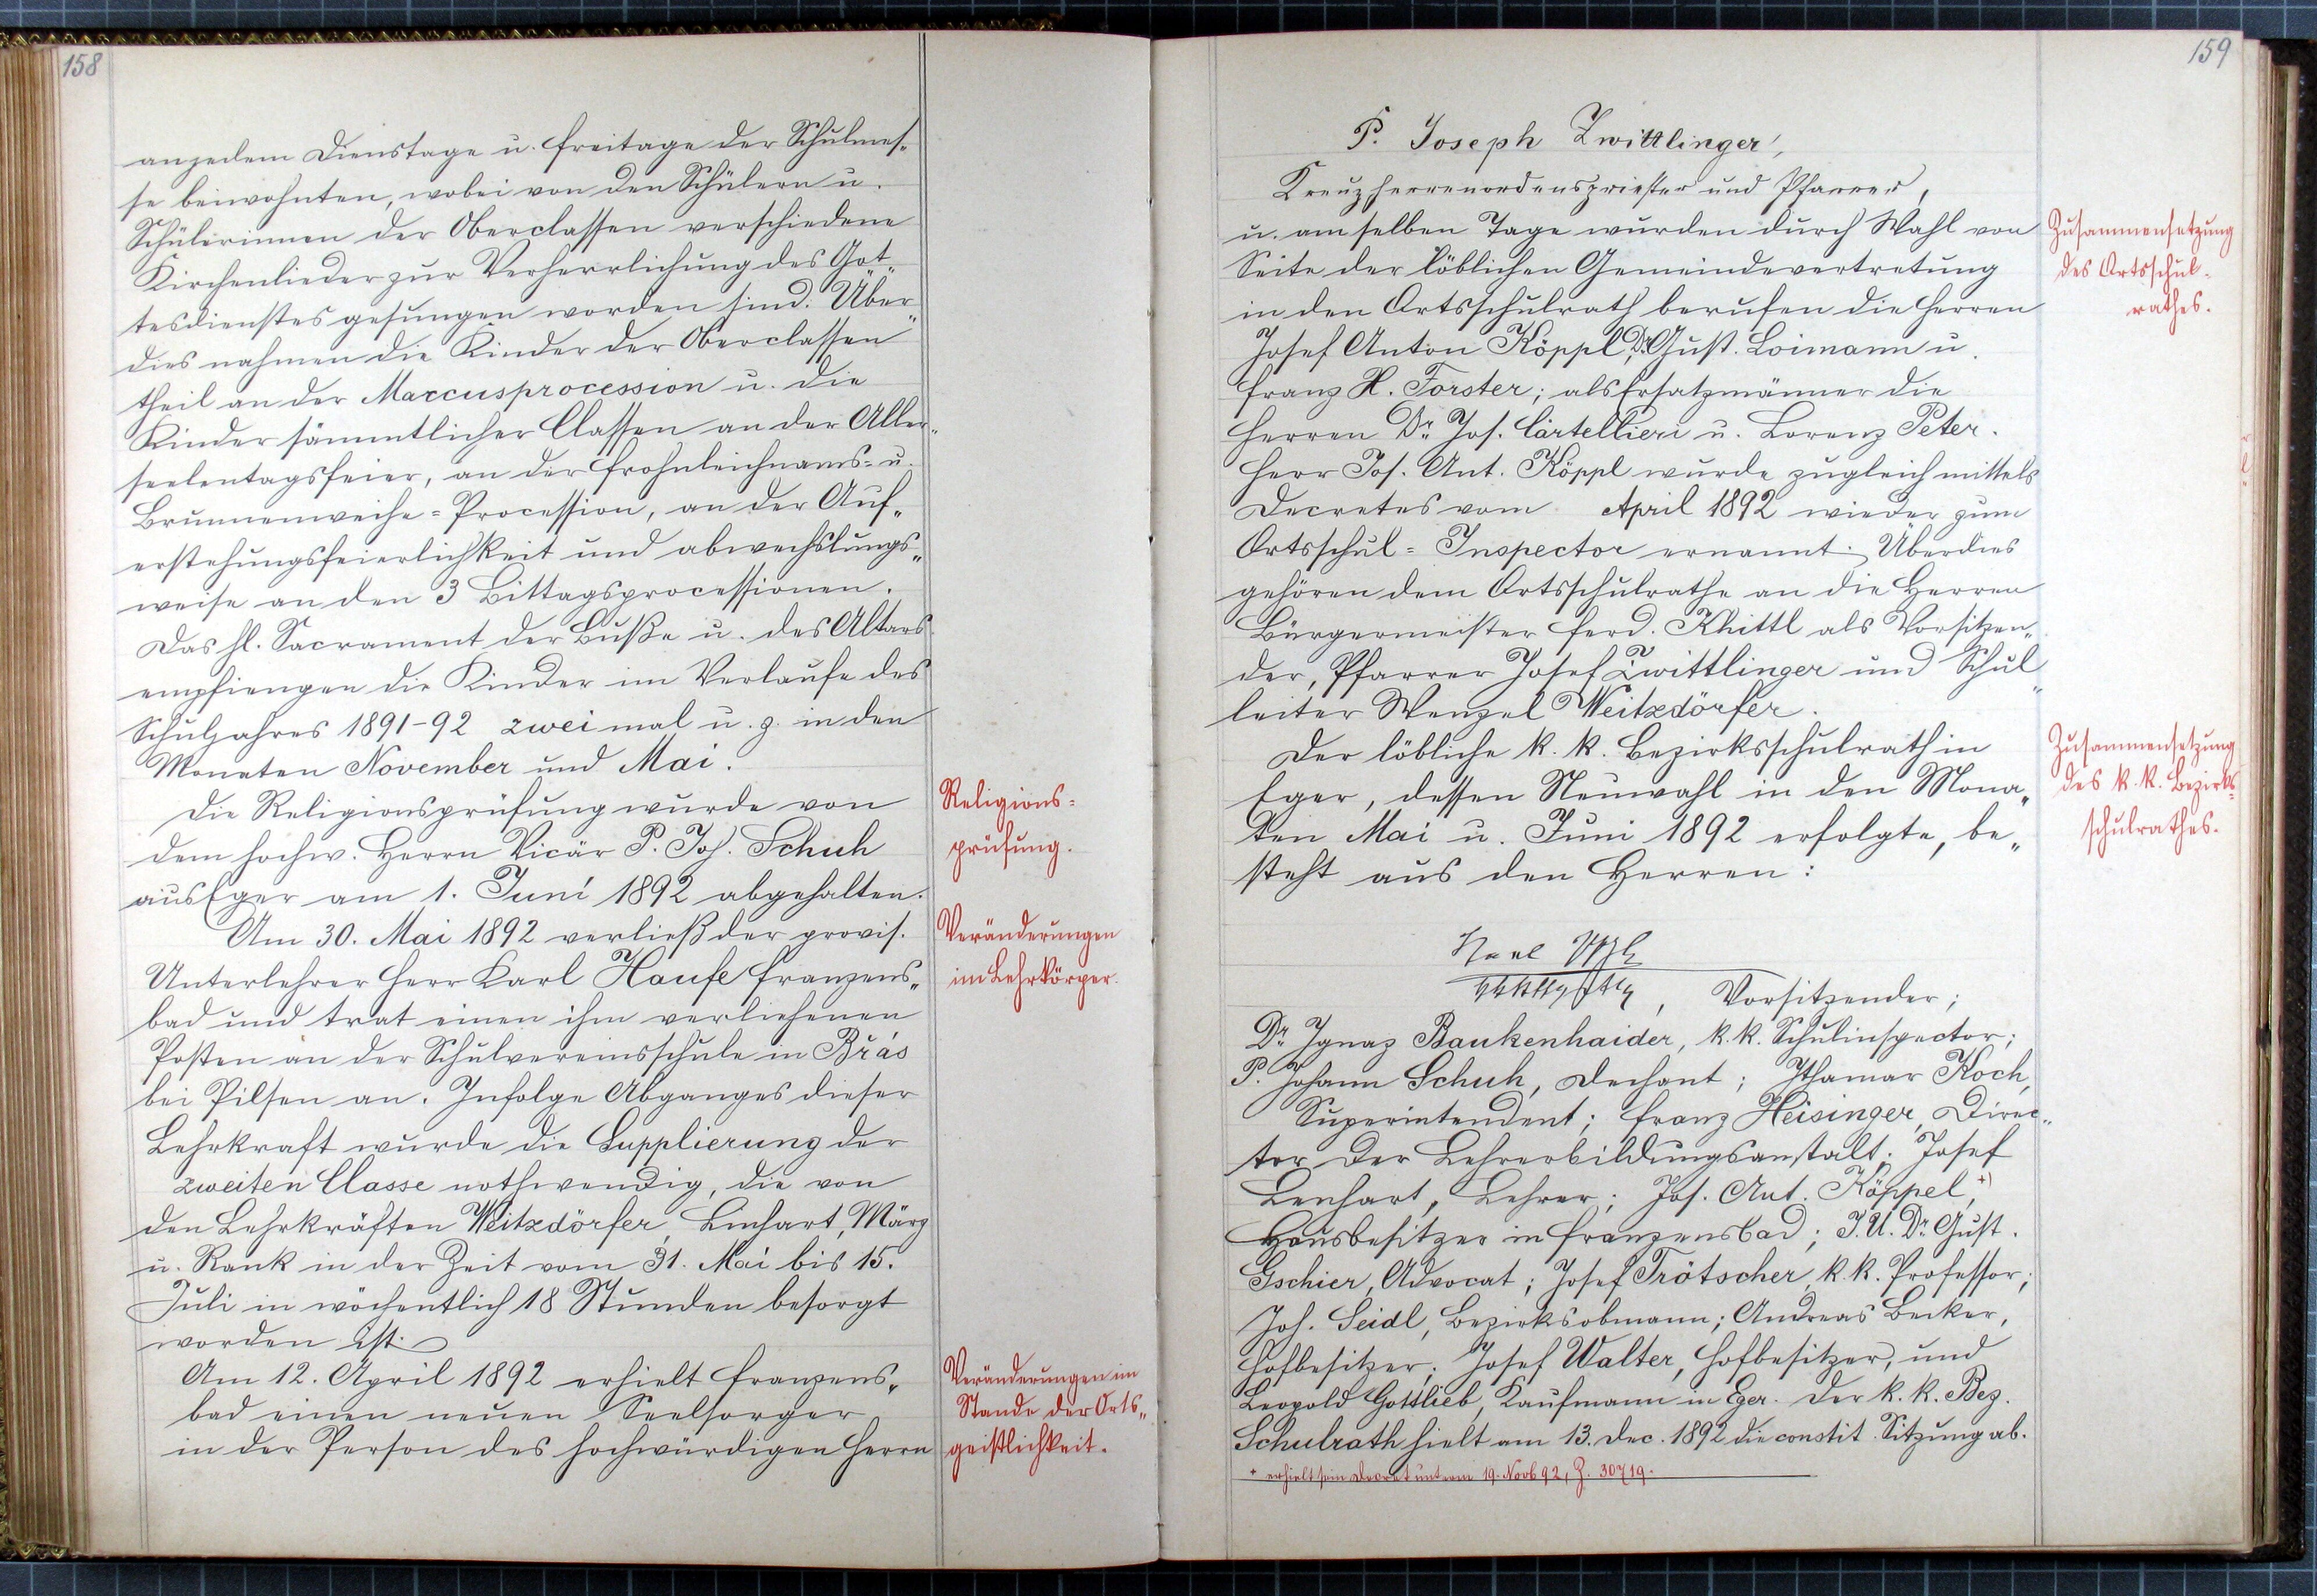 158
an jedem Dienstage u. Freitage der Schulmes„
se beiwohnten, wobei von den Schülern u.
Schülerinnen der Oberclassen verschiedene
Kirchenlieder zur Verherrlichung des Got„
tesdienstes gesungen worden sind. Über„
dies nahmen die Kinder der Oberclassen
theil an der Marcusprocession u. die
Kinder sämmtlicher Classen an der Aller„
seelentagsfeier, an der Frohnleichnams- u.
Brunnenweihe-Procession, an der Auf„
erstehungsfeierlichkeit und abwechslungs„
weise an den 3 Bittagsprocessionen.
Das hl. Sacrament der Buße u. des Altars
empfiengen die Kinder im Verlaufe des
Schuljahres 1891-92 zweimal u. z. in den
Monaten November und Mai.
Die Religionsprüfung wurde von
dem hochw. Herrn Vicär P. Joh. Schuh
aus Eger am 1. Juni 1892 abgehalten.
Am 30. Mai 1892 verließ der provis.
Unterlehrer Herr Karl Haufe Franzens„
bad und trat einen ihm verliehenen
Posten an der Schulvereinsschule in Břás
bei Pilsen an. Infolge Abganges dieser
Lehrkraft wurde die Supplierung der
zweiten Classe nothwendig, die von
den Lehrkräften Weitzdörfer, Linhart, März
u. Rank in der Zeit vom 31. Mai bis 15.
Juli in wöchentlich 18 Stunden besorgt
worden ist.
Am 12. April 1892 erhielt Franzens„
bad einen neuen Seelsorger
in der Person des hochwürdigen Herrn
Religions-
prüfung.
Veränderungen
im Lehrkörper.
Veränderungen im
Stande der Orts„
geistlichkeit.
159
P. Joseph Zwittlinger,
Kreuzherrenordenspriester und Pfarrer,
u. am selben Tage wurden durch Wahl von
Seite der löblichen Gemeindevertretung
in den Ortsschulrath berufen die Herren
Josef Anton Köppl, Dr. Gust. Loimann u.
Franz H. Forster; als Ersatzmänner die
Herren Dr. Jos. Cartellieri u. Lorenz Peter.
Herr Jos. Ant. Köppl wurde zugleich mittels
Decretes vom April 1892 wieder zum
Ortsschul-Inspector ernannt. Überdies
gehören dem Ortsschulrathe an die Herren
Bürgermeister Ferd. Khittl als Vorsitzen„
der, Pfarrer Josef Zwittlinger und Schul„
leiter Wenzel Weitzdörfer.
Der löbliche k. k. Bezirksschulrath in
Eger, dessen Neuwahl in den Mona„
ten Mai u. Juni 1892 erfolgte, be„
steht aus den Herren:
, Vorsitzender;
Dr. Ignaz Baukenhaider, k. k. Schulinspector;
P. Johann Schuh, Dechant; Ithamar Koch,
Superintendent; Franz Heisinger, Direc„
tor der Lehrerbildungsanstalt; Josef
Lenhart, Lehrer; Jos. Ant. Köppel,+)
Hausbesitzer in Franzensbad; J. U. Dr. Gust.
Gschier, Advocat; Josef Trötscher, k. k. Professor;
Joh. Seidl, Bezirksobmann; Andreas Becker,
Hofbesitzer; Josef Walter, Hofbesitzer, und
Leopold Gottlieb, Kaufmann in Eger. Der k. k. Bez.
Schulrath hielt am 13. Dec. 1892 die constit. Sitzung ab.
+ erhielt sein Decret unterm 19. Novb 92, Z. 30719.
Zusammensetzung
des Ortsschul-
rathes.
Zusammensetzung
des k. k. Bezirks-
schulrathes.